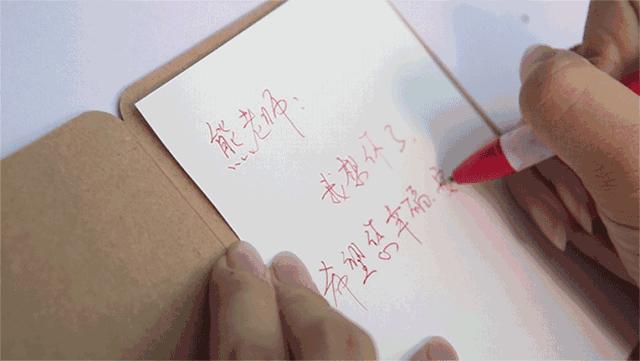 熊老师:
我想你了.
希望您幸福.